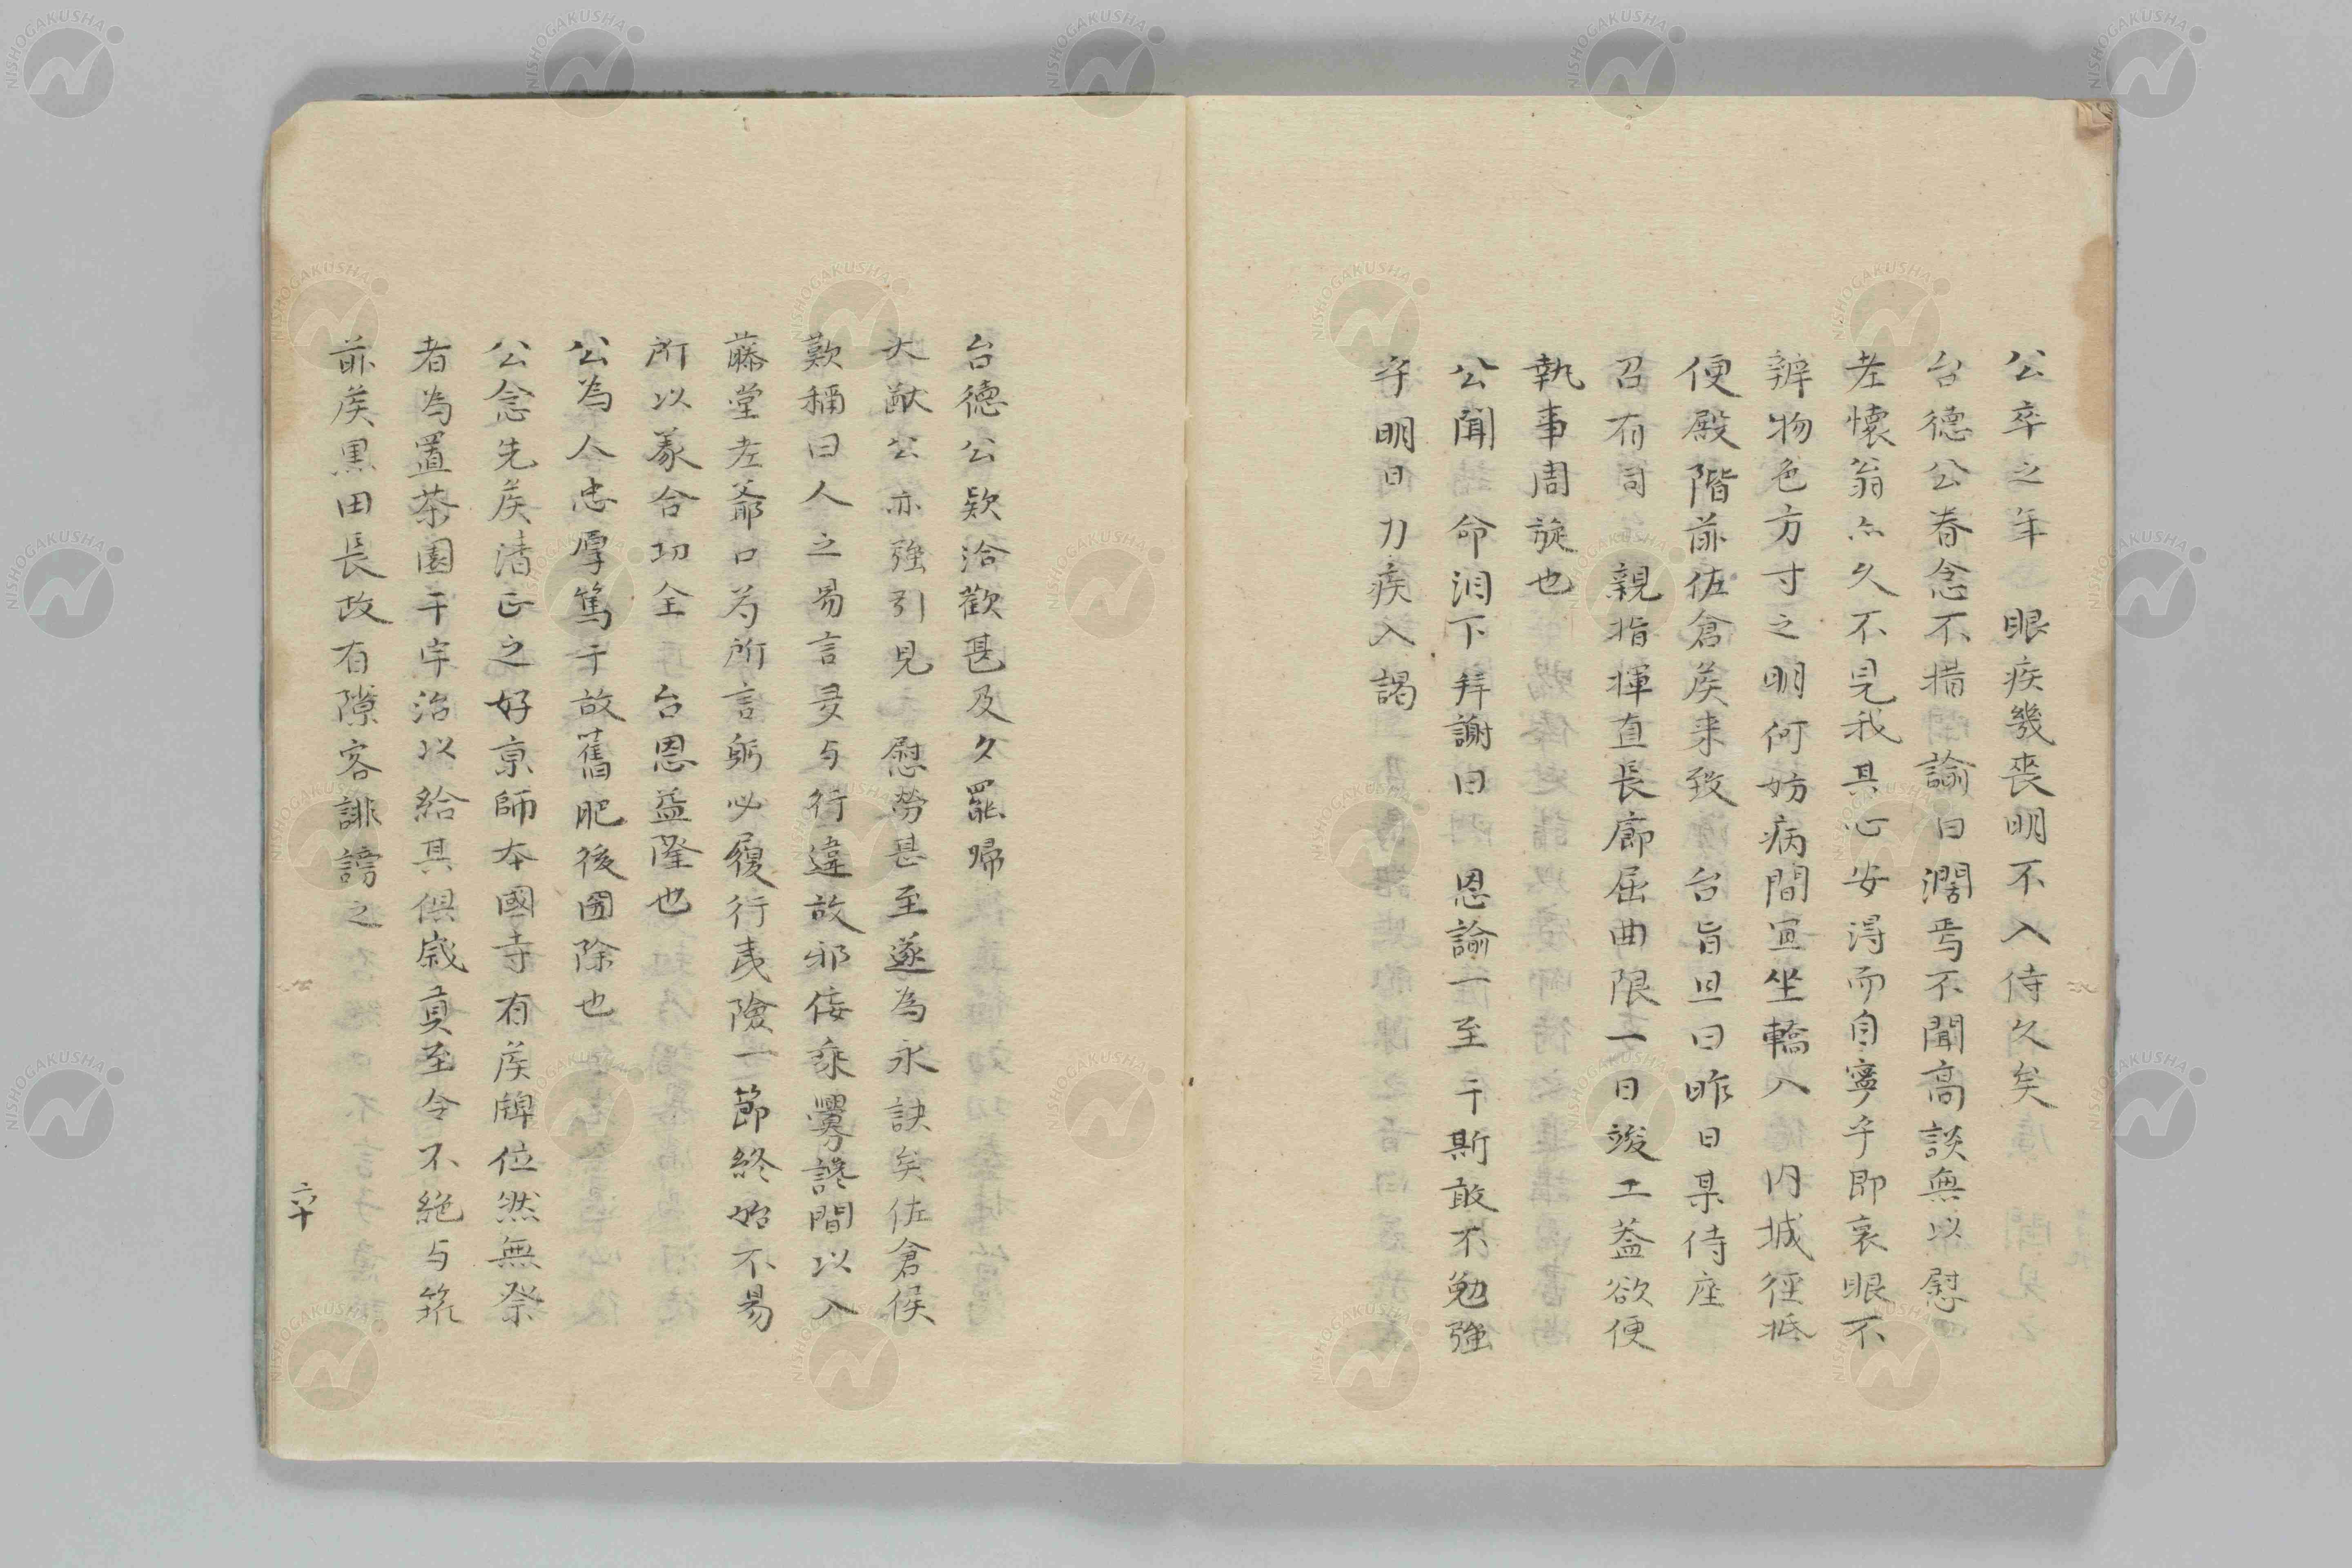 公卒之年 眼疾幾喪明不入侍久矣
台德公眷念不措 諭曰濶焉不聞高談無以慰
老懷翁亦久不見我其心安得而自寧乎即衰眼不
辨物色方寸之明何妨病間宜坐轎入 内城徑抵
便殿階前佐倉侯来致 台旨且曰昨日某侍座
召有司 親指揮直長廊屈曲限一日竣工蓋欲便
執事周旋也
公聞命泪下拜謝曰 恩諭一至于斯敢不勉強
乎明日力疾入謁
台德公欵洽歡甚及久罷歸
大猷公亦強引見 慰勞甚至遂為永訣矣佐倉侯
歎稱曰人之易言多与行違故邪佞乘釁讒間以入
藤堂老爺口芍所言躬必履行夷險一節終始不易
所以豢合切全 台恩益隆也
公為人忠厚篤于故舊肥後國除也
公念先侯清正之好京師本國寺有侯牌位然無祭
者為置茶園于宇治以給其倶歳奠至今不絶与筑
前侯黒田長政有隙客誹謗之
六十
NISHOGAKUSHA